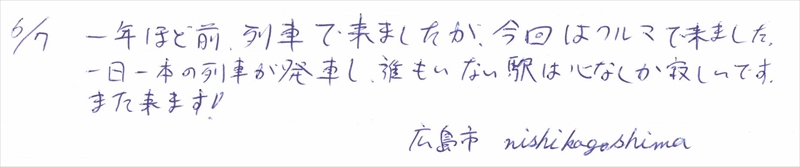 6/7 一年ほど前、列車で来ましたが、今回はクルマで来ました。
一日一本の列車が発車し、誰もいない駅は心なしか寂しいです。
また来ます!
広島市 nishikagoshima